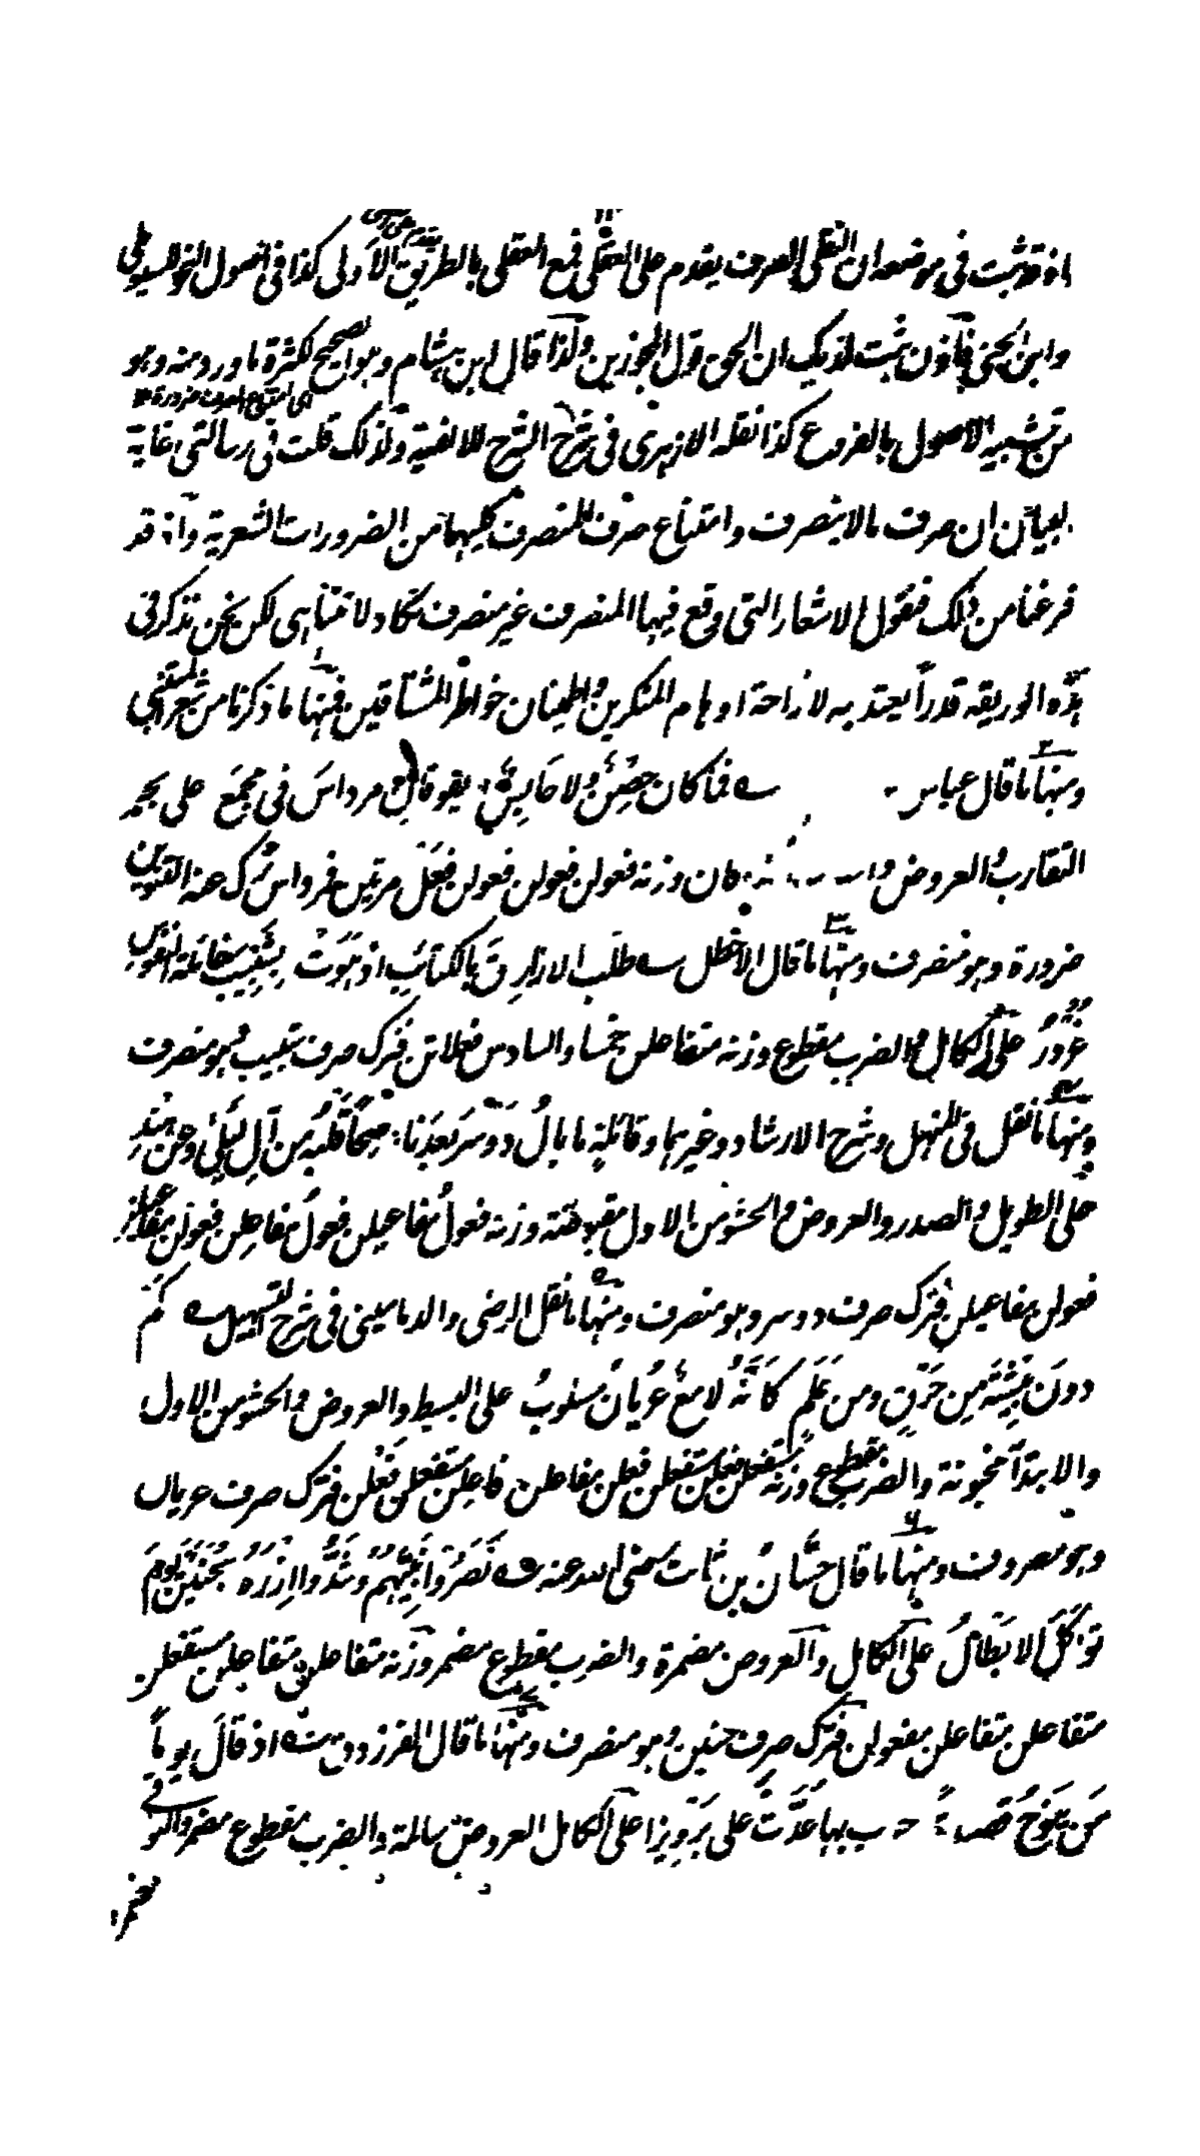 اذ قد ثبت في موضعه ان النقلي الصرف يقدم على العقلي فمع العقلي بالطريق الاولى كذا في اصول النحو للسيوطي
وابن الجني فاذن ثبت لديك ان الحق قول المجوزين ولذا قال ابن هشام وهو الصحيح لكثرة ما ورد منه وهو
من تشبيه الاصول بالفروع كذا نقله الازهري في شرح الشرح للالفية ولذلك قلت في رسالتي غاية
البيان ان صرف ما لا ينصرف وامتناع صرف المنصرف كليهما من الضرورات الشعرية واذ قد
فرغنا من ذلك فنقول الاشعار التي وقع فيها المنصرف غير منصرف تكاد لا تتناهى لكن نحن نذكر في
هذه الوريقة قدراً يعتد به لازاحة اوهام المنكرين واطمينان خواطر المشتاقين فمنها ما ذكرنا من شعر المتنبي
ومنها ما قال عباس فما كان حِصْنٌ ولا حَابِسٌ يفوقان مرداسَ في مَجْمَع على بحر
التقارب العروض كان وزنه فعولن فعولن فعولن فعل مرتين فمرداس ترك عنه التنوين
ضرورة وهو منصرف ومنها ما قال الاخطل طلب الازارق بالكتائب اذ هوت بشبيب غائلة النفوس
غرور على الكامل والضرب مقطوع وزنه متفاعلن خمسا والسادس فعلاتن فترك صرف شبيب وهو منصرف
ومنها ما نقل في المنهل وشرح الارشاد وغيرهما وقائلةٍ ما بالُ دَوْسَرَ بعدَنا صحا قلبُه من آلِ ليلى وعن هندِ
على الطويل والصدر والعروض والحشو من الاول مقبوضة وزنه فعولُ مفاعيلن فعولُ مفاعلن فعولن مفاعيلن
فعولن مفاعيلن فترك صرف دوسر وهو منصرف ومنها ما نقل الرضي والدماميني في شرح التسهيل كم
دونَ بيشةَ من خَرَقٍ ومن عَلَمٍ كأنَّهُ لامعٌ عُريانُ مسلوبُ على البسيط والعروض والحشو من الاول
والابتدآ مخبونة والضرب مقطوع وزنه مستفعلن فعلن مستفعلن فعلن مفاعلن فاعلن مستفعلن فعلن فترك صرف عريان
وهو مصروف ومنها ما قال حسّانُ بن ثابت رضي الله عنه نَصَرُوا نَبِيَّهُمْ وشَدُّوا ازرَهُ بحُنَيْنَ يَوْمَ
تواكُلِ الابطالِ على الكامل والعروض مضمرة والضرب مقطوع مضمر وزنه متفاعلن متفاعلن مستفعلن
متفاعلن متفاعلن مفعولن فترك صرف حنين وهو منصرف ومنها ما قال الفرزدق اذ قال يوماً
من تنوخُ بها عُدَّتْ على بَرَوبزا على الكامل العروض سالمة والضرب مقطوع مضمر